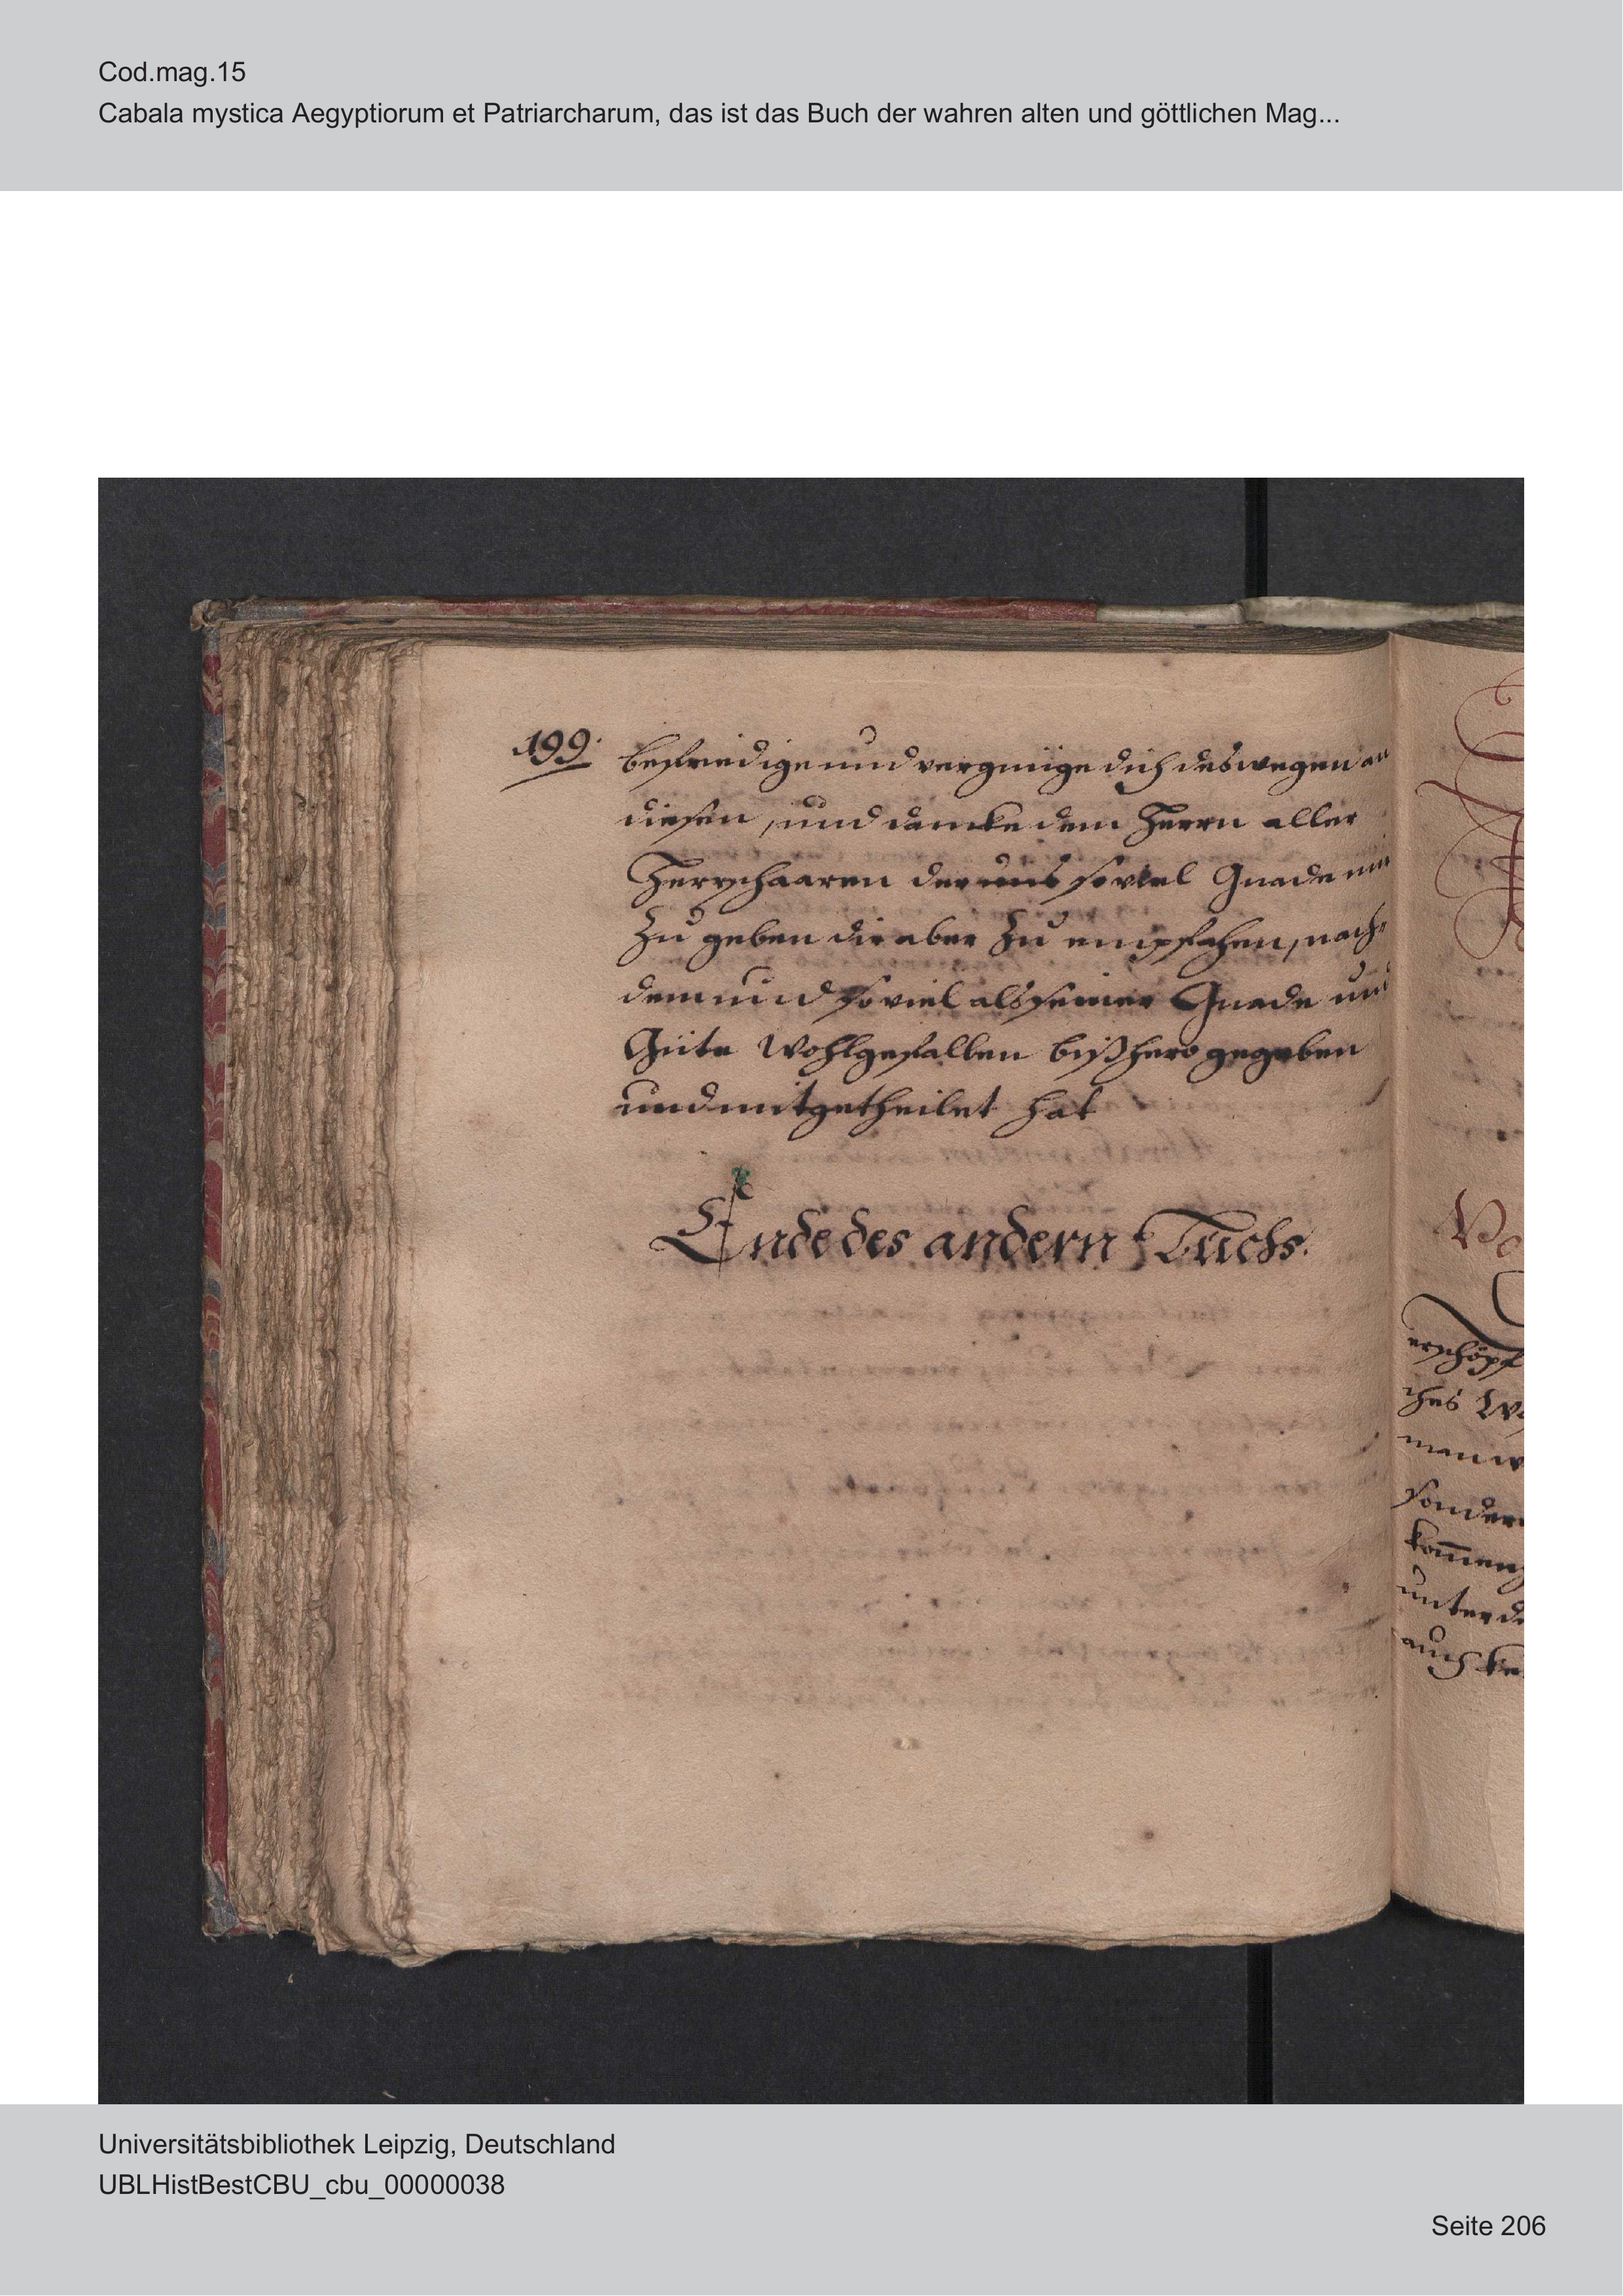 Cod.mag.15
Cabala mystica Aegyptiorum et Patriarcharum, das ist das Buch der wahren alten und göttlichen Mag...
199.
befriedige und vergnüge dich deswegen an
diesen, und dancke dem Herrn aller
Herrschaaren der uns so viel Gnade
Zu geben dir aber Zu empfahen, nach¬
dem und so viel als seiner Gnade und
Güte Wohlgefallen bißhero gegeben
und mitgetheilet hat
Ende des andern Buchs.
erschöpf
ches
man
sonder
kom̄en
unter
auch
Universitätsbibliothek Leipzig, Deutschland
UBLHistBestCBU_cbu_00000038
Seite 206